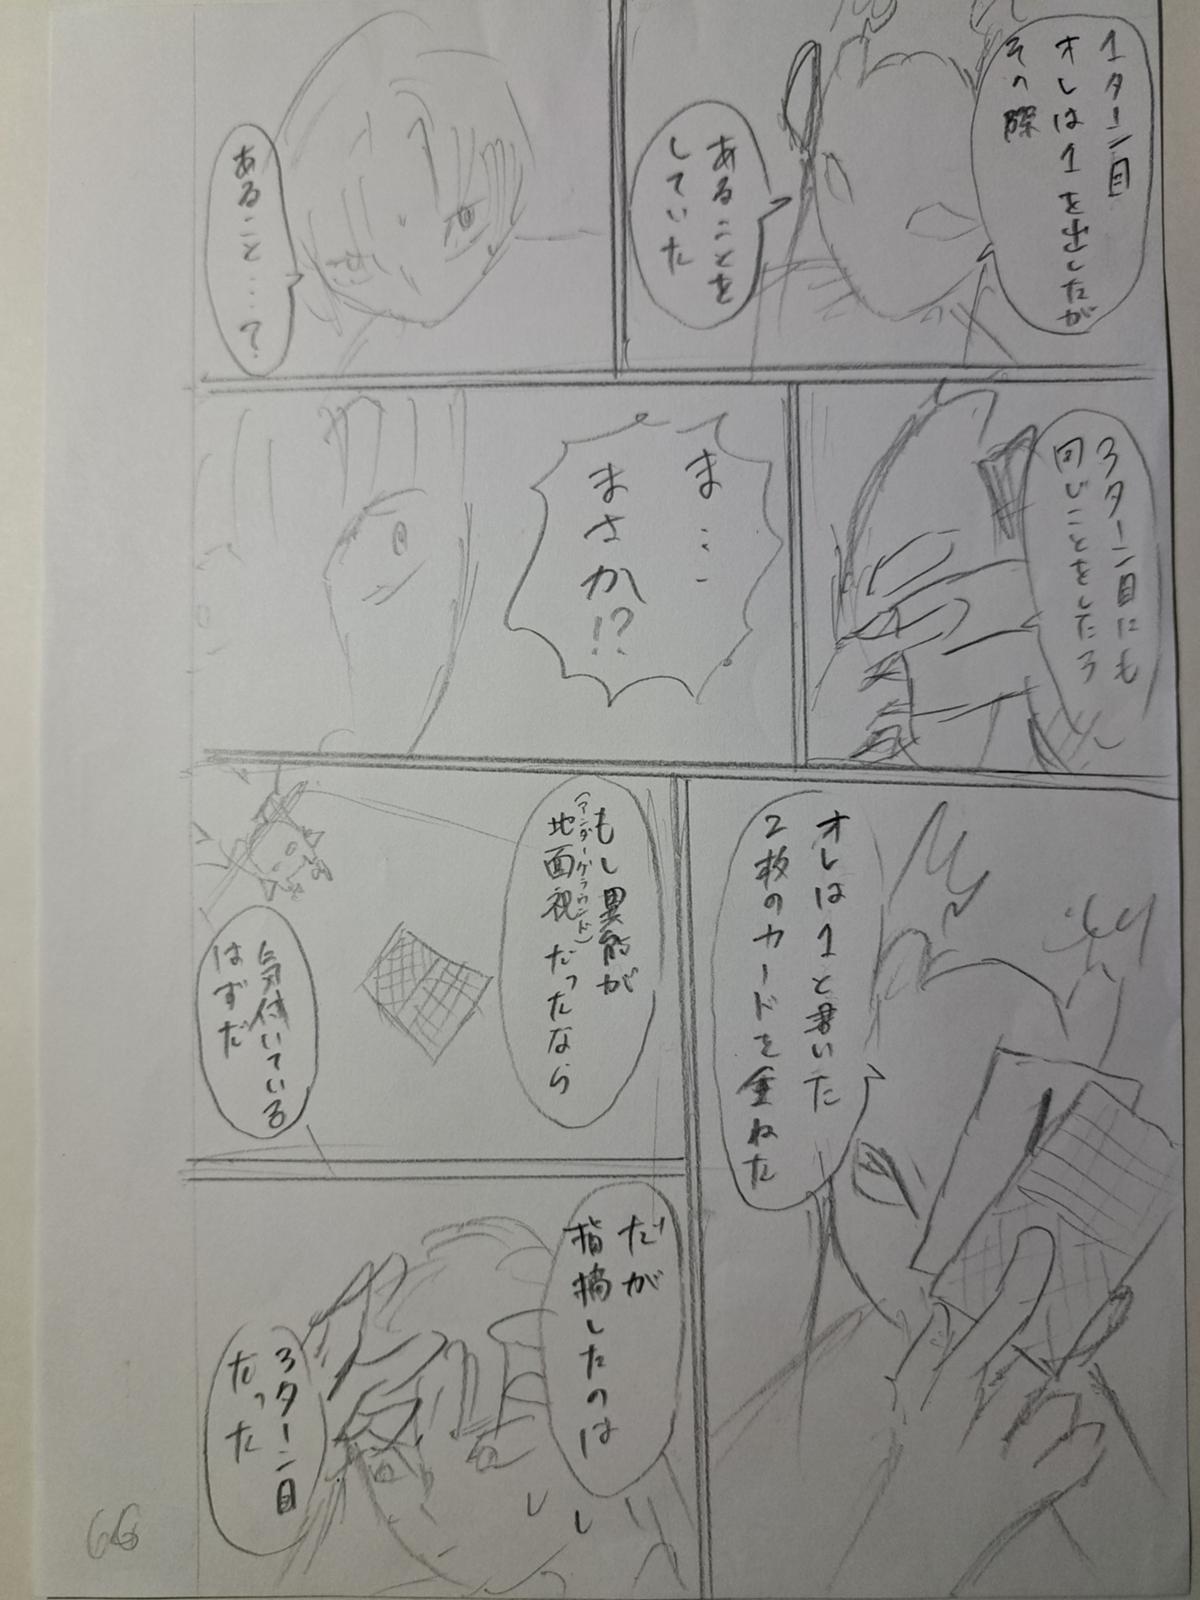 1ターン目
オレは1を出したが
その際
あることを
していた
あること…?
3ターン目にも
同じことをしたろ
ま…
まさか!?
オレは1と書いた
2枚のカードを重ねた
もし異能が
(アンダーグラウンド)
地面視だったなら
気付いている
はずだ
だが
指摘したのは
3ターン目
だった
66